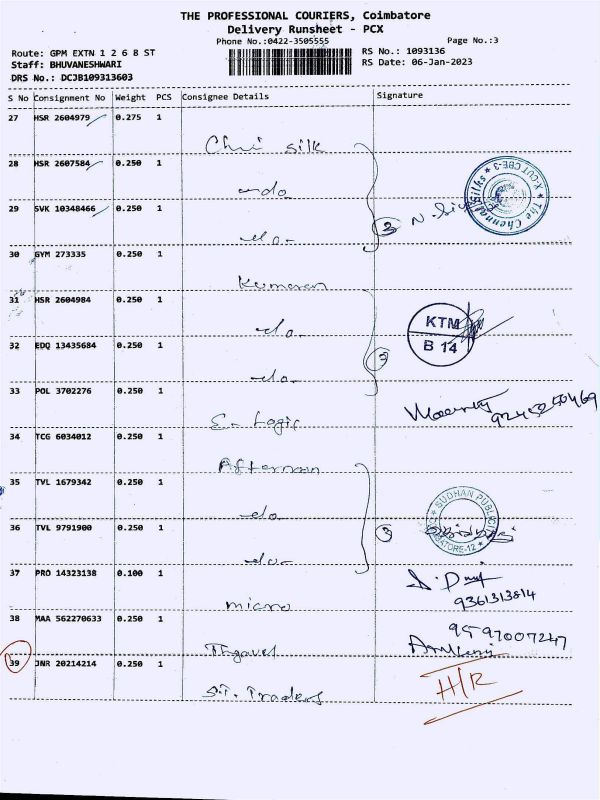 THE PROFESSIONAL COURIERS, Coimbatore
Delivery Runsheet - PCX
Phone No.:0422-3505555
Page No.:3
Route: GPM EXTN 1 2 6 8 ST
RS No.: 1093136
Staff: BHUVANESHWARI
RS Date: 06-Jan-2023
DRS No.: DCJB109313603
S No Consignment No Weight PCS Consignee Details Signature
27 HSR 2604979 0.275 1
Chni silk
28 HSR 2607584 0.250 1
-do-
29 SVK 10348466 0.250 1
-do-
3 N. Siv
The Chennai Silks * X-CUT CBE-3 *
30 GYM 273335 0.250 1
Kumaran
31 HSR 2604984 0.250 1
-do-
KTM
B 14
32 EDQ 13435684 0.250 1
-do-
3
33 POL 3702276 0.250 1
E-Logic
34 TCG 6034012 0.250 1
Afternoon
35 TVL 1679342 0.250 1
-do-
36 TVL 9791900 0.250 1
-do-
3
SUDHAN PUBLIC
37 PRO 14323138 0.100 1
micro
9361313814
38 MAA 562270633 0.250 1
9597007247
39 JNR 20214214 0.250 1
S.T. Traders
H/R